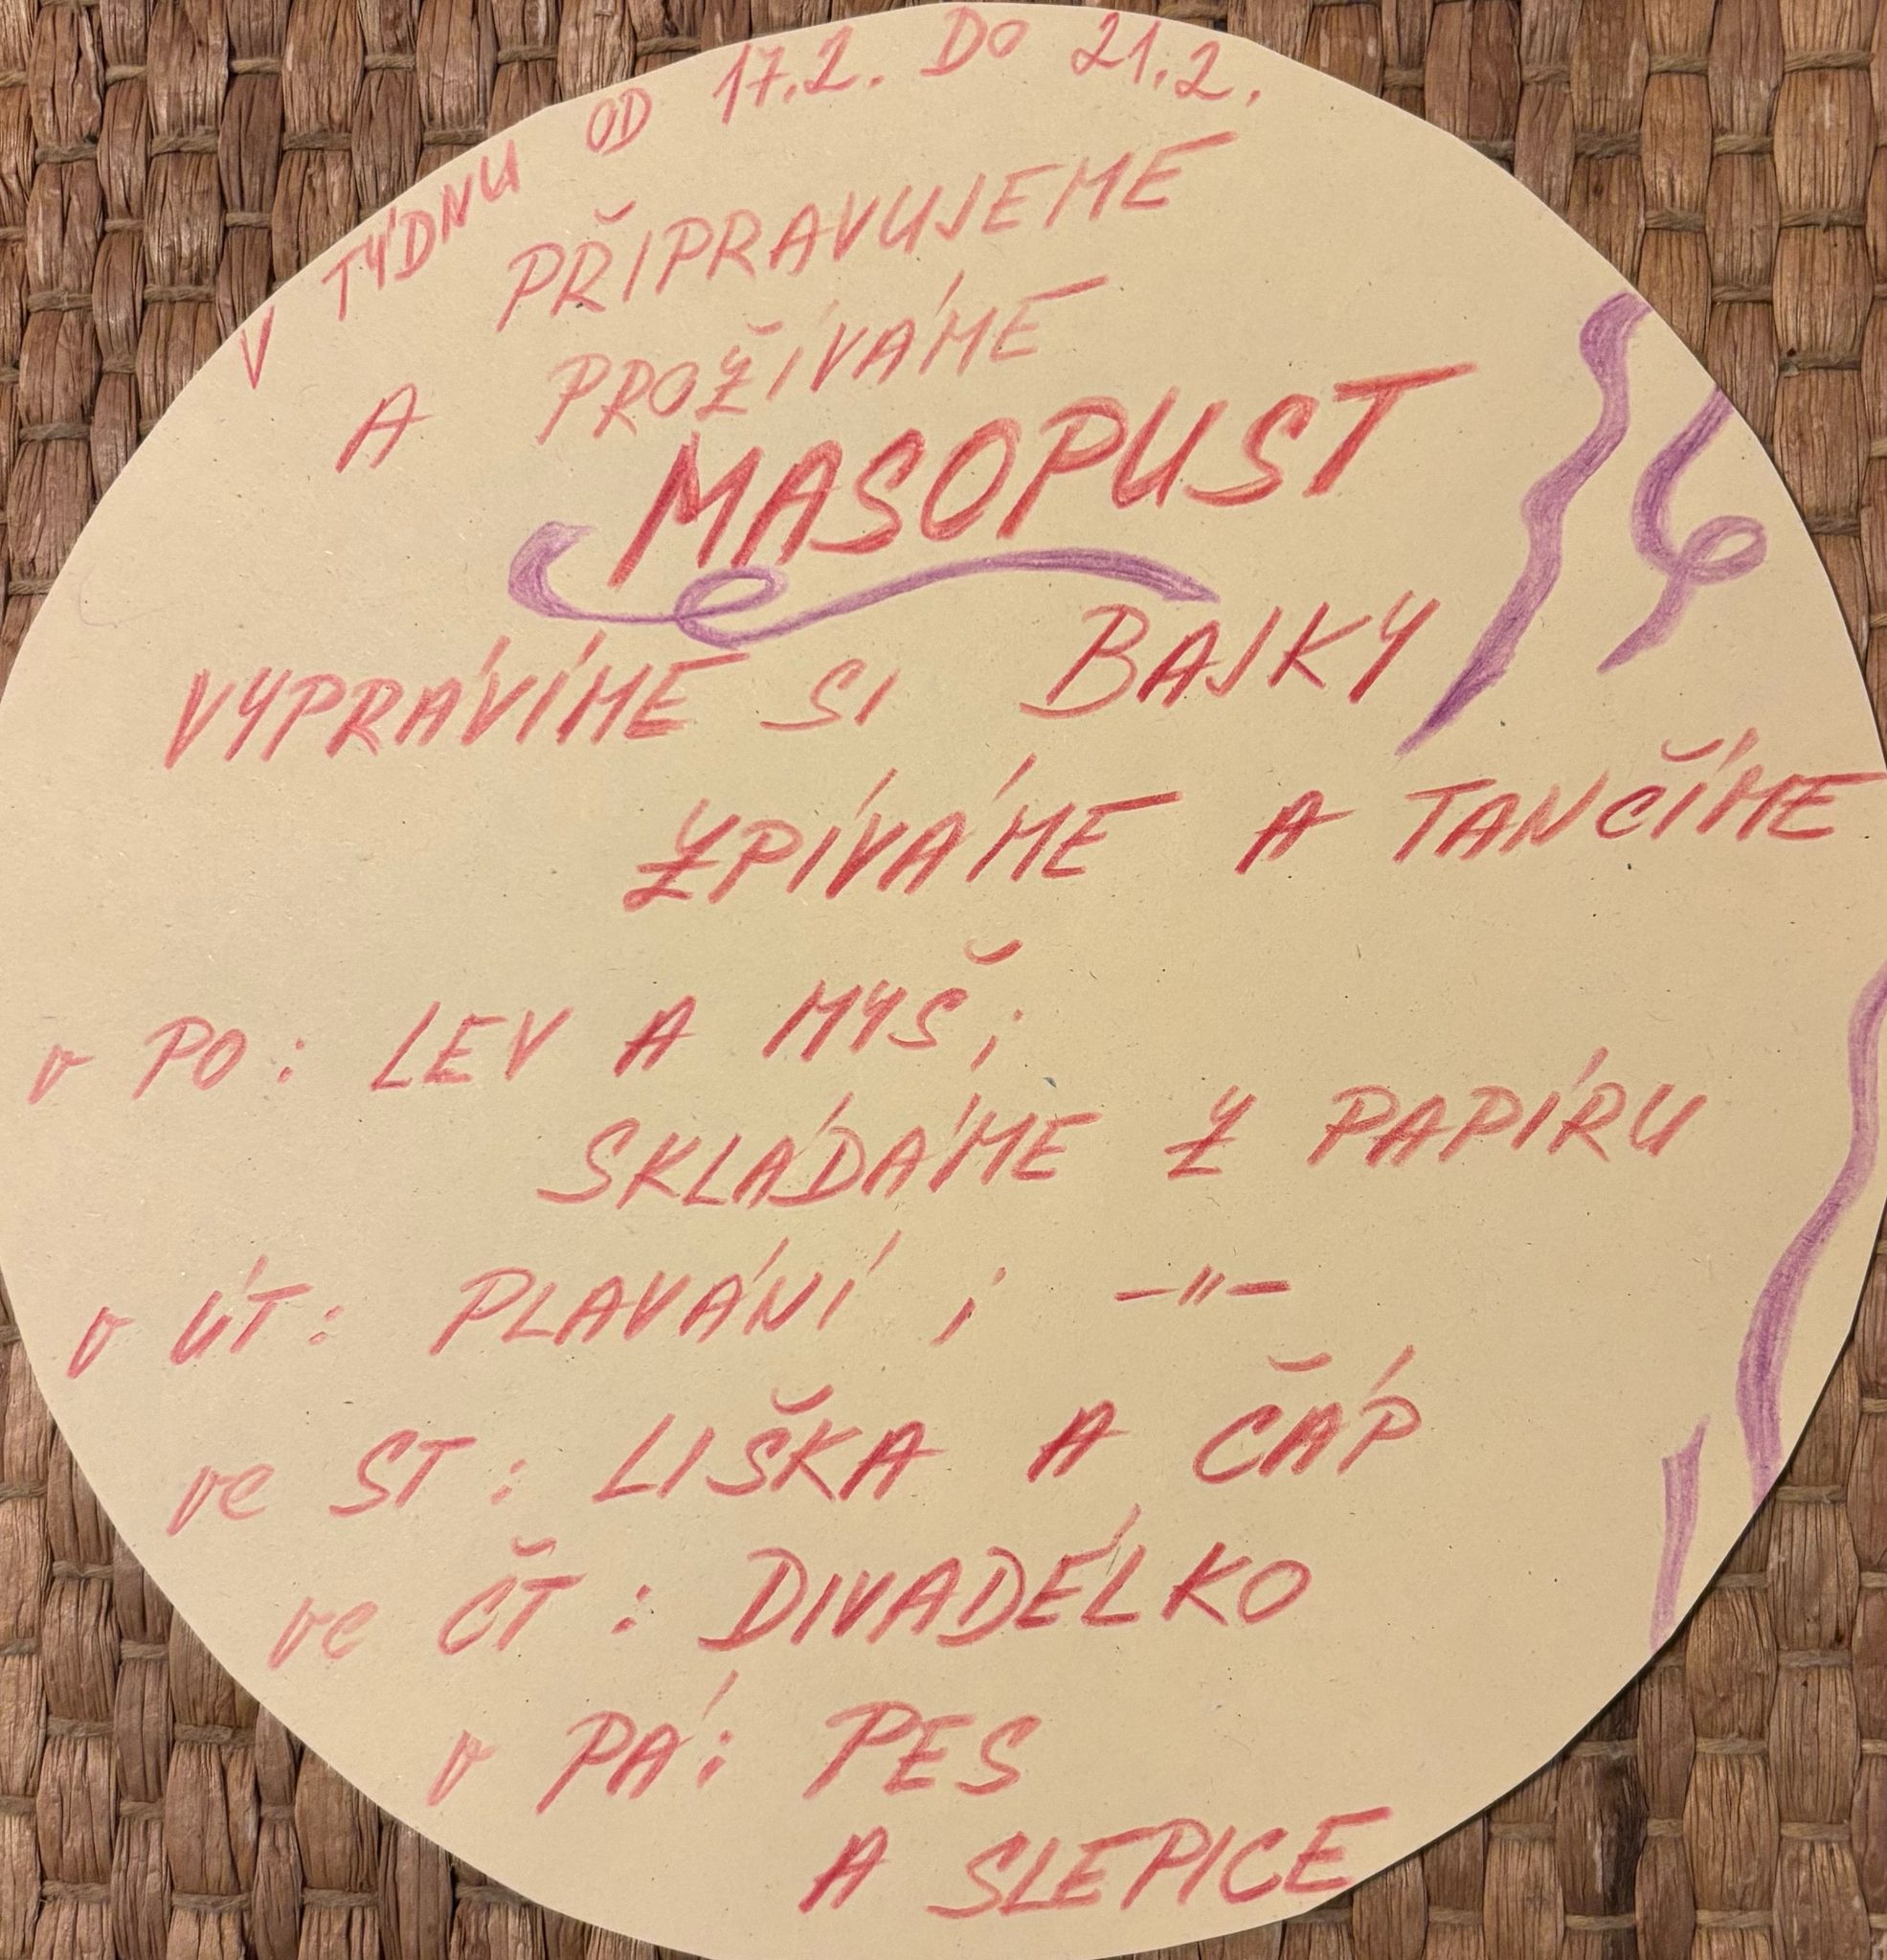 V TÝDNU OD 17.2. DO 21.2.
PŘIPRAVUJEME
A PROŽÍVÁME
MASOPUST
VYPRÁVÍME SI BAJKY
ZPÍVÁME A TANČÍME
v PO: LEV A MYŠ;
SKLÁDÁME Z PAPÍRU
v ÚT: PLAVÁNÍ ; -"-
ve ST: LIŠKA A ČÁP
ve ČT: DIVADÉLKO
v PÁ: PES
A SLEPICE